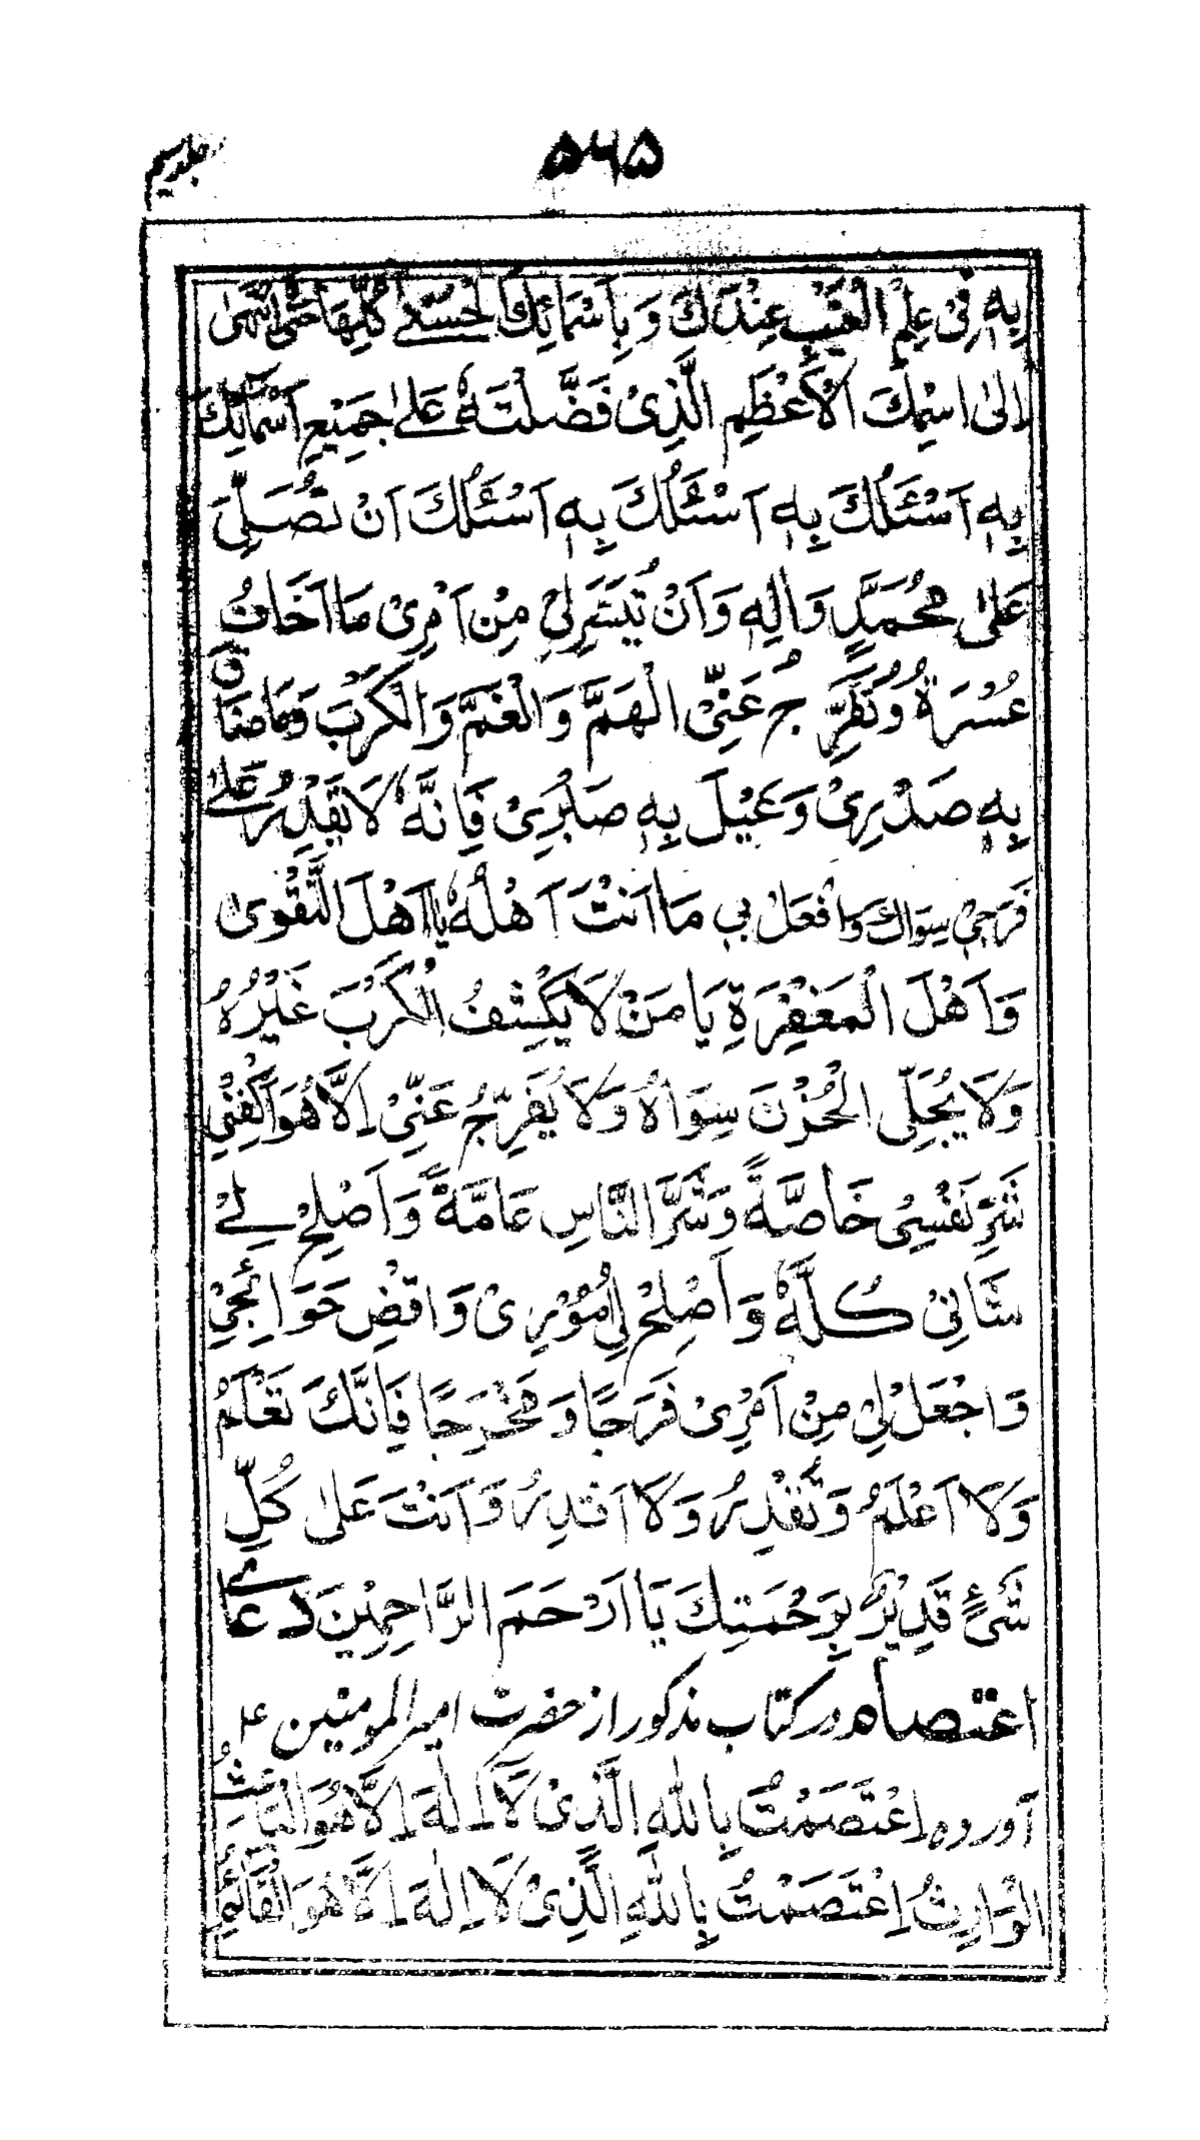 ۵۶۵
جلد سیم
بِهٖ فِیْ عِلْمِ الْغَیْبِ عِنْدَكَ وَ بِاَسْمَائِكَ الْحُسْنٰی كُلِّهَا حَتّٰی انْتَهٰی
اِلٰی اسْمِكَ الْاَعْظَمِ الَّذِیْ فَضَّلْتَهٗ عَلٰی جَمِیْعِ اَسْمَائِكَ
بِهٖ اَسْئَلُكَ بِهٖ اَسْئَلُكَ بِهٖ اَسْئَلُكَ اَنْ تُصَلِّیَ
عَلٰی مُحَمَّدٍ وَاٰلِهٖ وَاَنْ تُیَسِّرَ لِیْ مِنْ اَمْرِیْ مَا اَخَافُ
عُسْرَهٗ وَتُفَرِّجُ عَنِّیْ الْهَمَّ وَالْغَمَّ وَالْكَرْبَ وَمَا ضَاقَ
بِهٖ صَدْرِیْ وَعِیْلَ بِهٖ صَبْرِیْ فَاِنَّهٗ لَا یَقْدِرُ عَلٰی
فَرَجِیْ سِوَاكَ وَافْعَلْ بِی مَا اَنْتَ اَهْلُهٗ یَا اَهْلَ التَّقْوٰی
وَاَهْلَ الْمَغْفِرَةِ یَا مَنْ لَا یَكْشِفُ الْكَرْبَ غَیْرُهُ
وَلَا یُجَلِّی الْحُزْنَ سِوَاهُ وَلَا یُفَرِّجُ عَنِّیْ اِلَّا هُوَ اكْفِنِیْ
شَرَّ نَفْسِیْ خَاصَّةً وَشَرَّ النَّاسِ عَامَّةً وَاَصْلِحْ لِیْ
شَانِیْ كُلَّهٗ وَاَصْلِحْ لِیْ اُمُوْرِیْ وَاقْضِ حَوَائِجِیْ
وَاجْعَلْ لِیْ مِنْ اَمْرِیْ فَرَجًا وَمَخْرَجًا فَاِنَّكَ تَعْلَمُ
وَلَا اَعْلَمُ وَتَقْدِرُ وَلَا اَقْدِرُ وَاَنْتَ عَلٰی كُلِّ
شَیْءٍ قَدِیْرٌ بِرَحْمَتِكَ یَا اَرْحَمَ الرَّاحِمِیْنَ دعای
اعتصام در کتاب مذکور از حضرت امیرالمومنین ع
آورده اِعْتَصَمْتُ بِاللهِ الَّذِیْ لَا اِلٰهَ اِلَّا هُوَ الْبَاعِثُ
الْوَارِثُ اِعْتَصَمْتُ بِاللهِ الَّذِیْ لَا اِلٰهَ اِلَّا هُوَ الْقَائِمُ